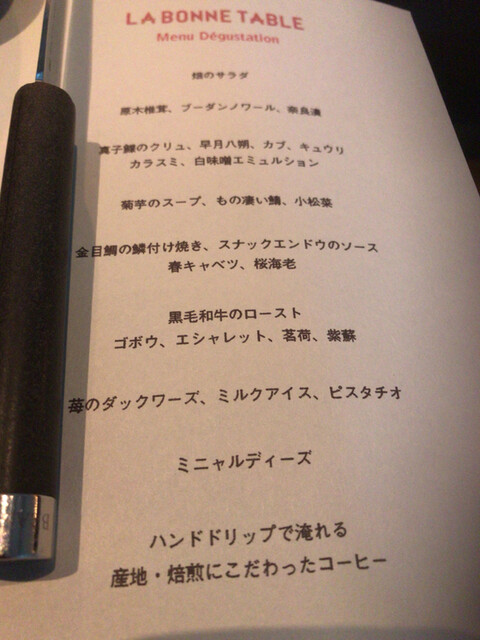 LA BONNE TABLE
Menu Dégustation
畑のサラダ
原木椎茸、ブーダンノワール、奈良漬
真子鰈のクリュ、早月八朔、カブ、キュウリ
カラスミ、白味噌エミュルション
菊芋のスープ、もの凄い鯖、小松菜
金目鯛の鱗付け焼き、スナックエンドウのソース
春キャベツ、桜海老
黒毛和牛のロースト
ゴボウ、エシャレット、茗荷、紫蘇
苺のダックワーズ、ミルクアイス、ピスタチオ
ミニャルディーズ
ハンドドリップで淹れる
産地・焙煎にこだわったコーヒー